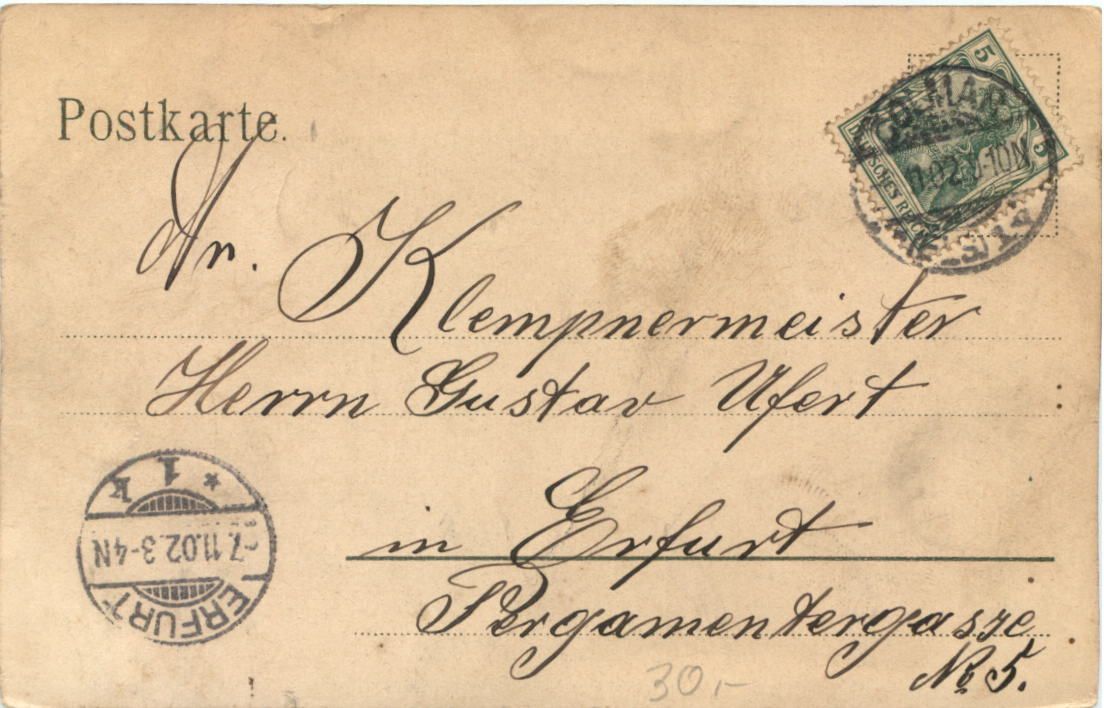 Postkarte.
5
5
DEUTSCHES REICH
COLMAR
02
-10N
ELS
An.
Klempnermeister
Herrn Gustav Ufert
in Erfurt
Pergamentergasse
No 5.
* 1 k
7.11.02.3-4N
ERFURT
30,-